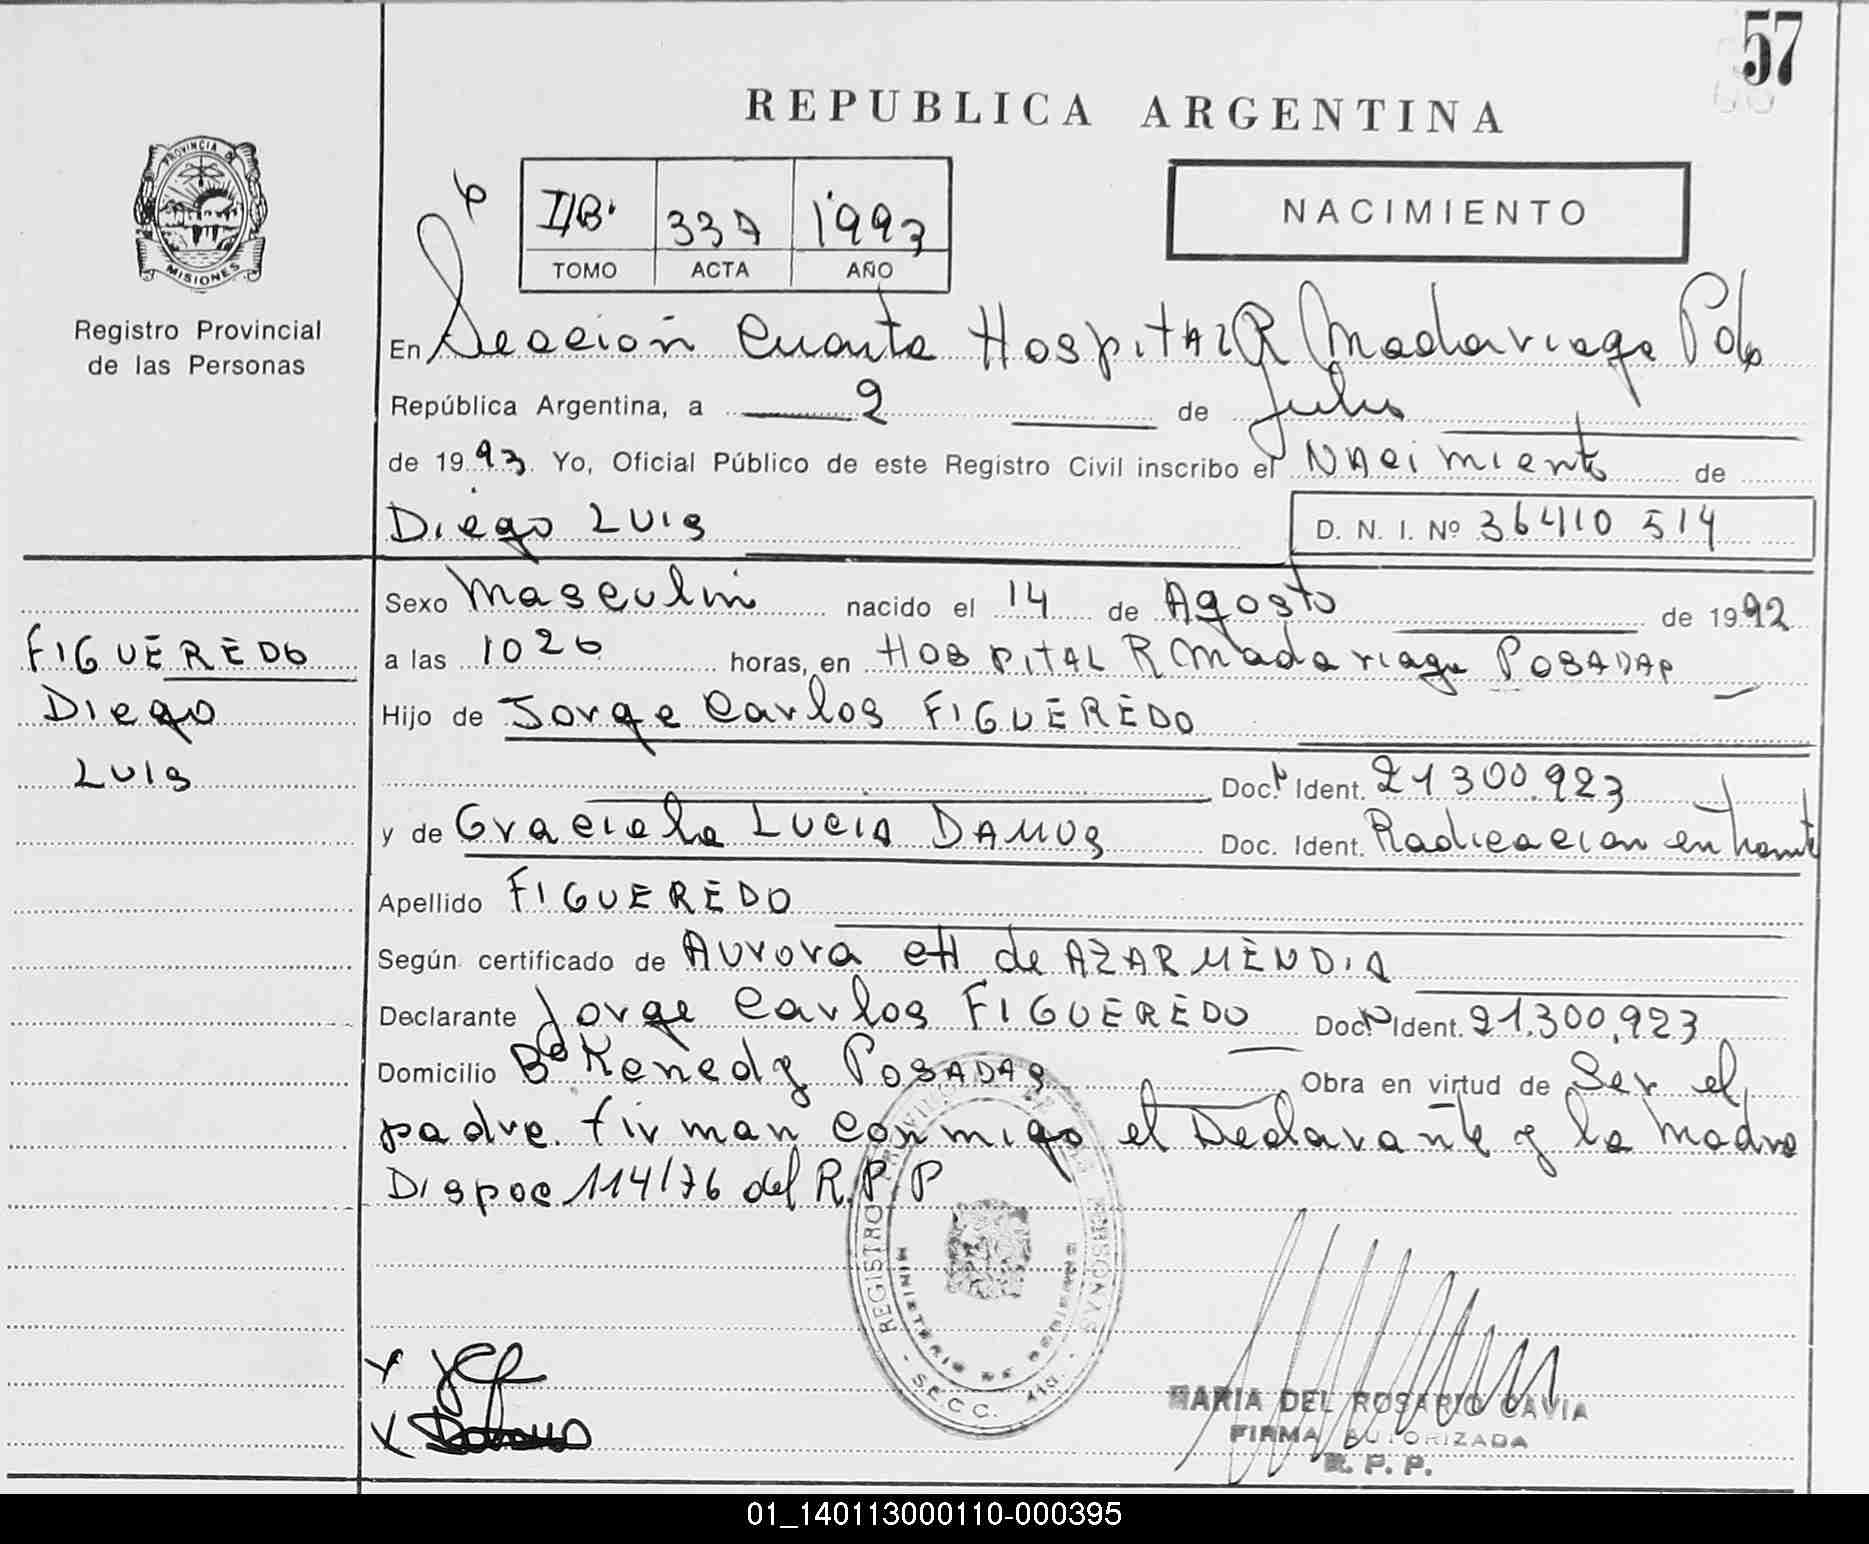 57
REPUBLICA ARGENTINA
PROVINCIA DE
MISIONES
Registro Provincial
de las Personas
I/B. 337 1993
TOMO ACTA AÑO
NACIMIENTO
En Sección Cuarta Hospital R Madariaga Pdas
República Argentina, a 2 de Julio
de 1993. Yo, Oficial Público de este Registro Civil inscribo el Nacimiento de
Diego Luis
D. N. I. Nº 36410 514
Sexo Masculino nacido el 14 de Agosto de 1992
FIGUEREDO
Diego
Luis
a las 1020 horas, en HOSPITAL R Madariaga POSADAS
Hijo de Jorge Carlos FIGUEREDO
Doc. Ident. 21300.923
y de Graciela Lucia DAMUS Doc. Ident. Radicacion en tramite
Apellido FIGUEREDO
Según certificado de Aurora etH de AZARMENDIA
Declarante Jorge Carlos FIGUEREDO Doc. Ident. 21.300.923
Domicilio Bº Kenedy POSADAS Obra en virtud de Ser el
padre. firman conmigo el Declarante y la Madre
Dispoc 114/76 del R.P.P
REGISTRO PROVINCIAL DE LAS PERSONAS
MINISTERIO DE GOBIERNO
SECC. 4ta.
MARIA DEL ROSARIO CAVIA
FIRMA AUTORIZADA
R. P. P.
01_140113000110-000395